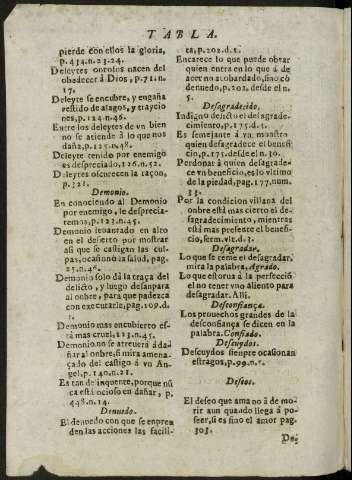 TABLA.
pierde con ellos la gloria,
p.434.n.23.24.
Deleytes onrosos nacen del
obedecer à Dios, p.71.n.
17.
Deleyte se encubre, y engaña
vestido de alagos, y trayciones
p.124.n.46.
Entre los deleytes de vn bien
no se atiende à lo que nos
daña, p.125.n.48.
Deleyte tenido por enemigo
es despreciado, 126.n.52.
Deleytes oscurecen la raçon,
p.321.
Demonio.
En conociendo al Demonio
por enemigo, le despreciaremos,
p.123.n.45.
Demonio levantado en alto
en el desierto por mostrar
asi que se castigan las culpas,
ocasionò la salud, pag.
25.n.46.
Demonio solo dà la traça del
delicto, y luego desanpara
al onbre, para que padezca
con executarle, pag.109.d.
Demonio mas encubierto està
mas cruel, 123.n.45.
Demonio no se atreuerà à dañar
al onbre, si mira amenaçado
del castigo à vn Angel.
p.140.n.21.
Es tan delinquente, porque nũca
està ocioso en dañar, p.
448.n.14.
Denuedo.
El denuedo con que se enprenden
las acciones las facili-
ta, p.202.d.1.
Encarece lo que puede obrar
quien entra en lo que à de
açer no acobardado, sino cõ
denuedo, p.202, desde el n.
5.
Desagradecido.
Indigno delicto el desagradecimiento,
p.175.d.3.
Es semejante à vn monstro
quien desagradece el beneficio,
p.175. desde el n.30.
Perdonar à quien desagradece
vn beneficio, es lo vltimo
de la piedad, pag.177. num.
33.
Por la condicion villana del
onbre està mas cierto el desagradecimiento,
mientras
està mas presente el beneficio,
serm.vlt.d.3.
Desagradar.
Lo que se teme el desagradar,
mira la palabra, Agrado.
Lo que estorua à la perfecciõ
el no tener vno aliento para
desagradar. Alli.
Desconfiança.
Los prouechos grandes de la
desconfiança se dicen en la
palabra. Confiado.
Descuydos.
Descuydos sienpre ocasonan
estragos, p.99.n.
Deseos.
El deseo que ama no à de morir
aun quando llega à poseer,
si es fino el amor pag.
303.